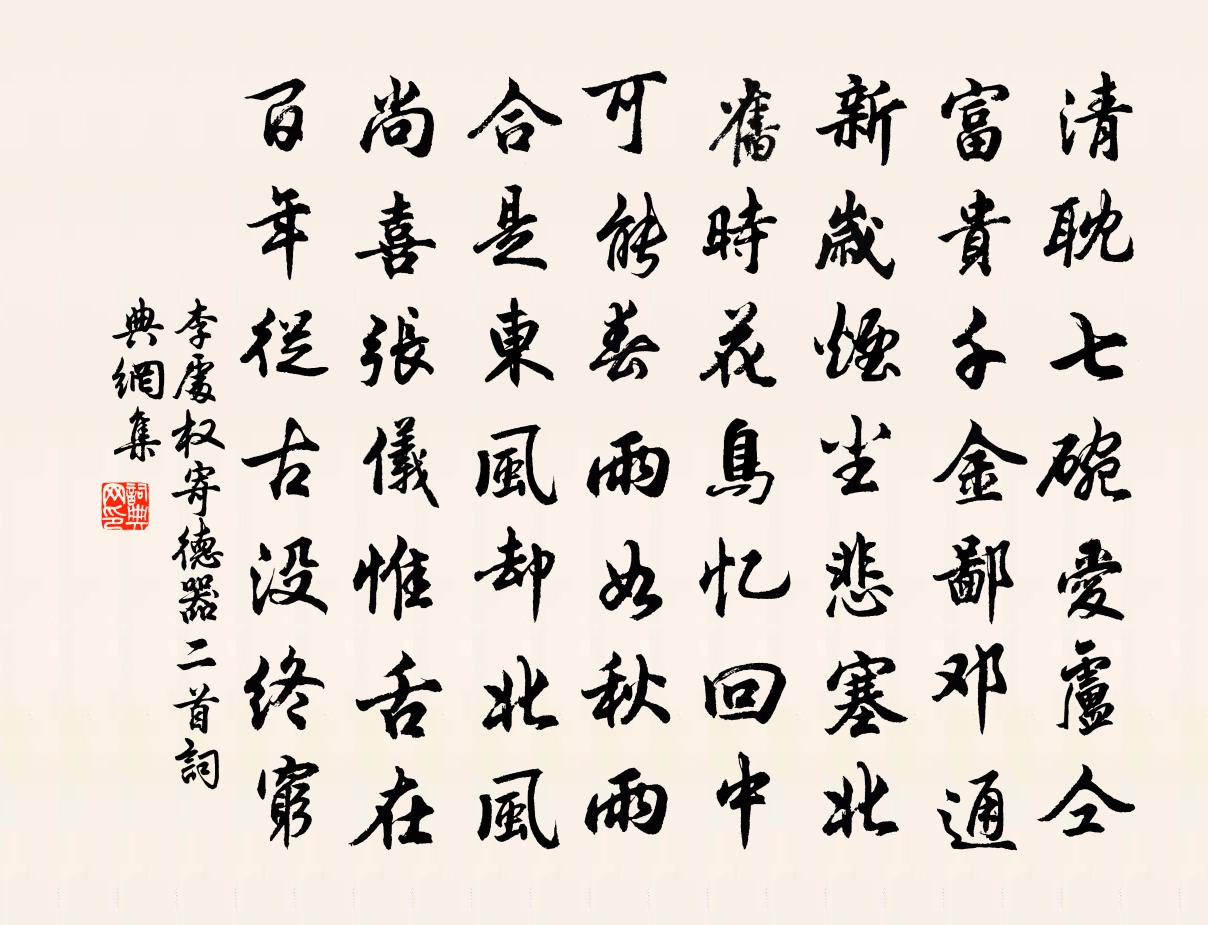 清耽七碗愛盧仝
富貴千金鄙邓通
新歲煙尘悲塞北
舊時花鳥忆回中
可能春雨如秋雨
合是東風却北風
尚喜張儀惟舌在
百年從古没终窮
李處权寄德器二首詞
典網集
詞典
网印